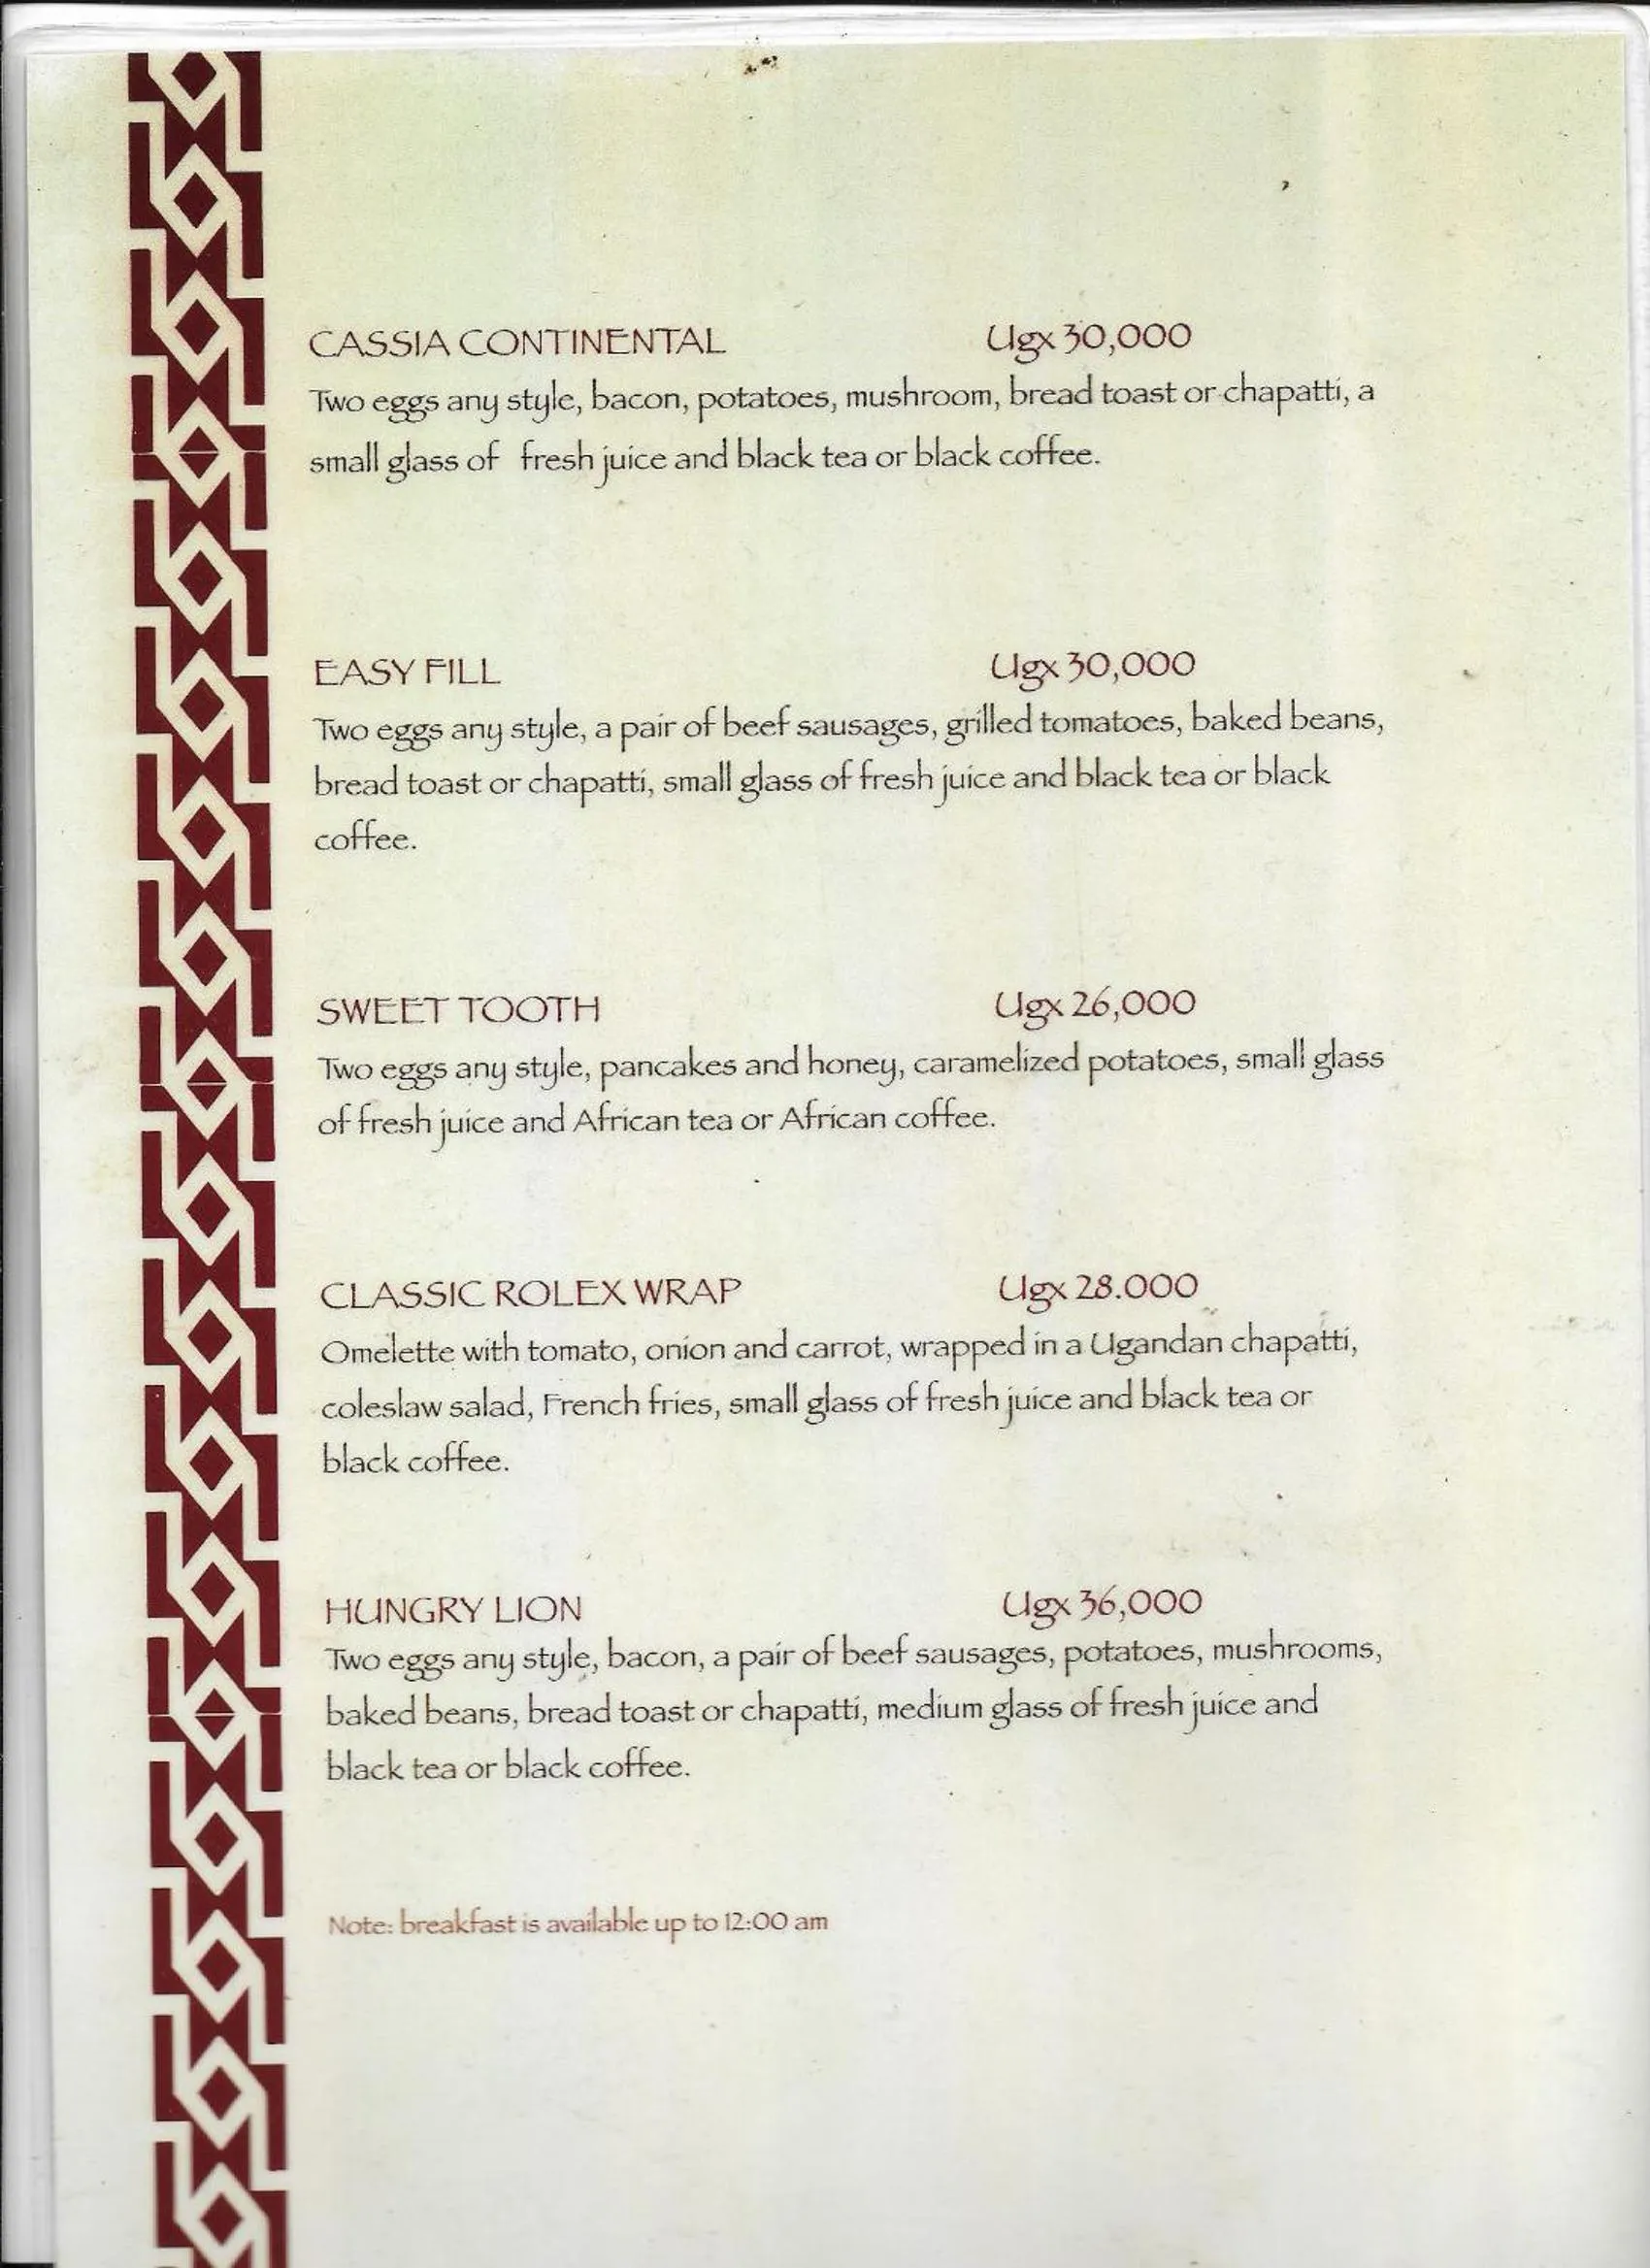 CASSIA CONTINENTAL Ugx 30,000
Two eggs any style, bacon, potatoes, mushroom, bread toast or chapatti, a
small glass of fresh juice and black tea or black coffee.
EASY FILL Ugx 30,000
Two eggs any style, a pair of beef sausages, grilled tomatoes, baked beans,
bread toast or chapatti, small glass of fresh juice and black tea or black
coffee.
SWEET TOOTH Ugx 26,000
Two eggs any style, pancakes and honey, caramelized potatoes, small glass
of fresh juice and African tea or African coffee.
CLASSIC ROLEX WRAP Ugx 28.000
Omelette with tomato, onion and carrot, wrapped in a Ugandan chapatti,
coleslaw salad, French fries, small glass of fresh juice and black tea or
black coffee.
HUNGRY LION Ugx 36,000
Two eggs any style, bacon, a pair of beef sausages, potatoes, mushrooms,
baked beans, bread toast or chapatti, medium glass of fresh juice and
black tea or black coffee.
Note: breakfast is available up to 12:00 am